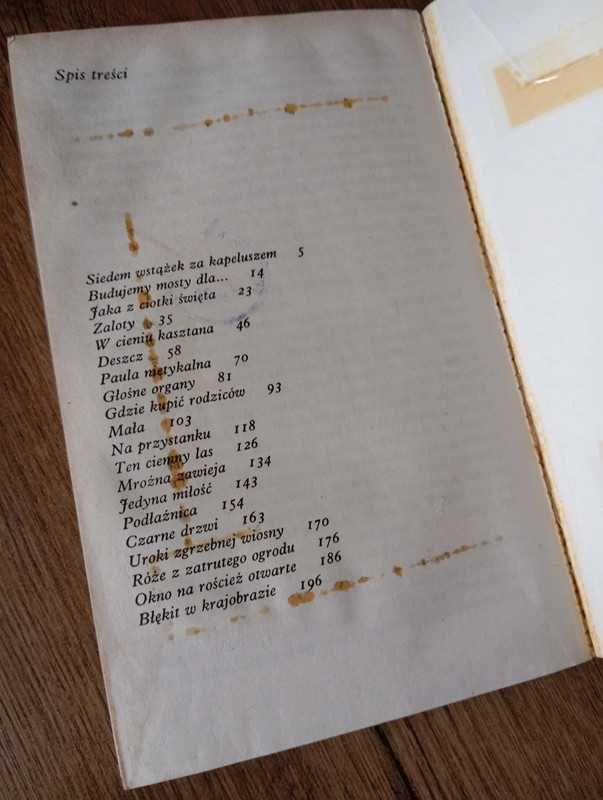 Spis treści
Siedem wstążek za kapeluszem 5
Budujemy mosty dla... 14
Jaka z ciotki święta 23
Zaloty 35
W cieniu kasztana 46
Deszcz 58
Paula nietykalna 70
Głośne organy 81
Gdzie kupić rodziców 93
Mała 103
Na przystanku 118
Ten ciemny las 126
Mroźna zawieja 134
Jedyna miłość 143
Podłaźnica 154
Czarne drzwi 163
Uroki zgrzebnej wiosny 170
Róże z zatrutego ogrodu 176
Okno na rościeź otwarte 186
Błękit w krajobrazie 196